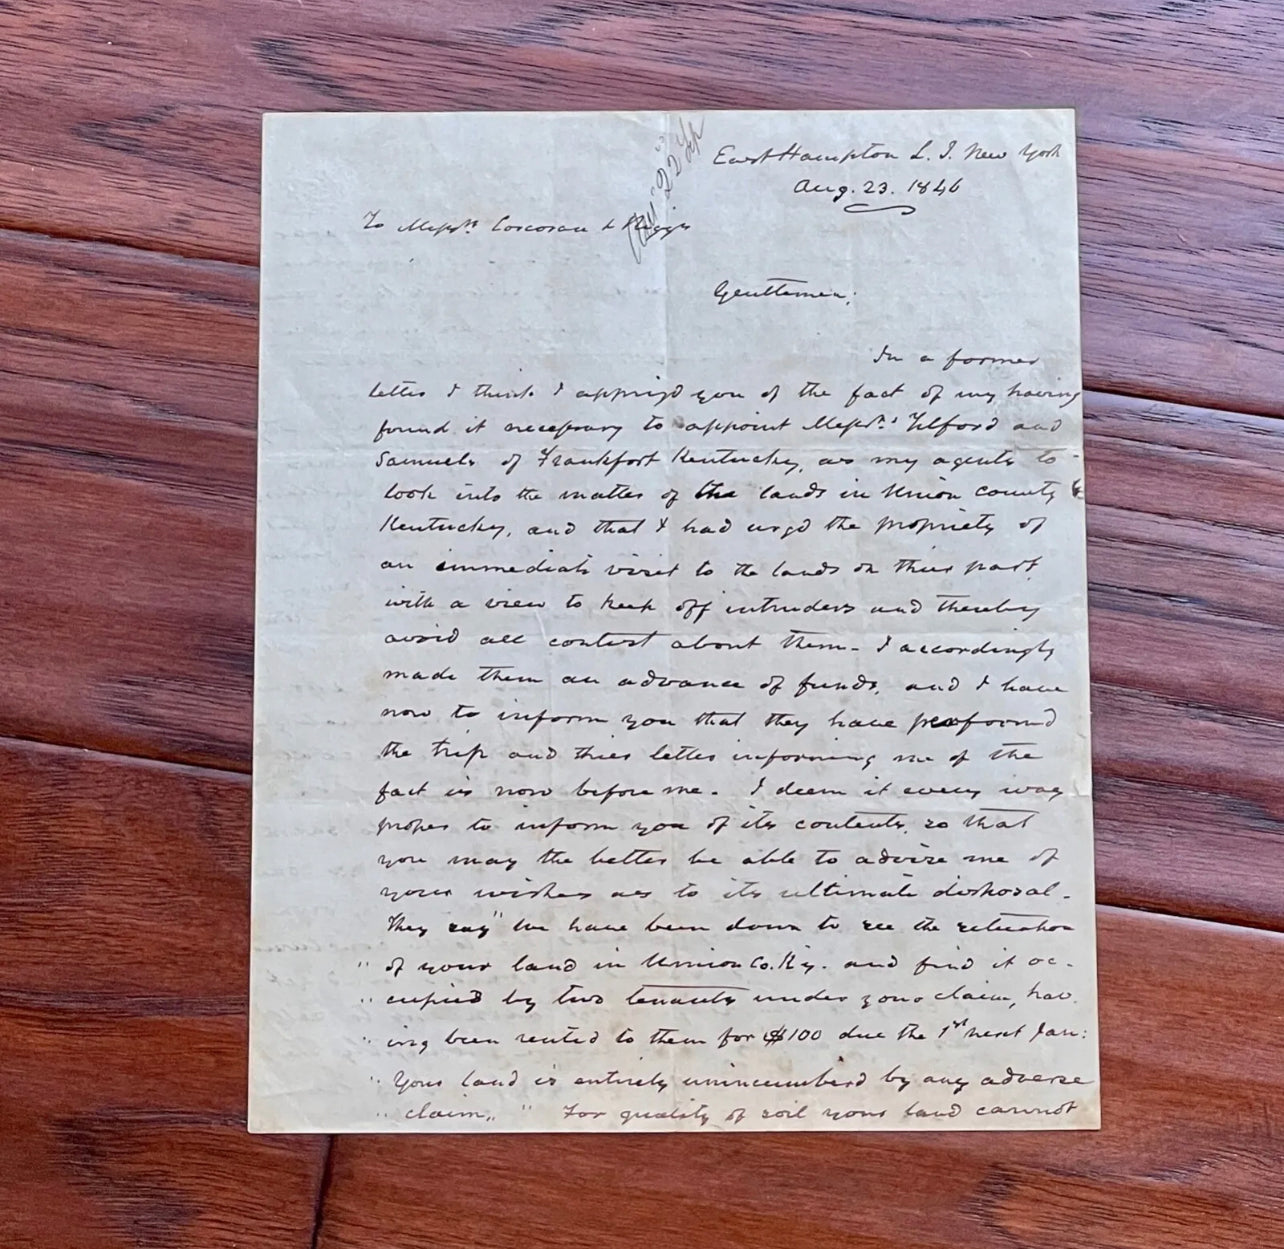 East Hampton L. I. New York
Aug. 23. 1846
To Messrs. Corcoran & Riggs
Gentlemen;
In a former
letter I think I apprizd you of the fact of my having
found it necessary to appoint Messrs. Tilford and
Samuels of Frankfort Kentucky, as my agents to
look into the matter of the lands in Union county
Kentucky, and that I had urgd the propriety of
an immediate visit to the lands on their part
with a view to keep off intruders and thereby
avoid all contest about them - I accordingly
made them an advance of funds, and I have
now to inform you that they have performd
the trip and their letter informing me of the
fact is now before me. I deem it every way
proper to inform you of its contents, so that
you may the better be able to advise me of
your wishes as to its ultimate disposal.
They say "We have been down to see the situation
" of your land in Union Co. Ky. and find it oc-
" cupied by two tenants under your claim, hav
" ing been rented to them for $100 due the 1st next Jan:
" Your land is entirely unincumberd by any adverse
" claim,, " For quality of soil your land cannot